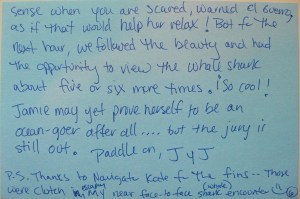 sense when you are scared, warned El Guero,
as if that would help her relax! But for the
next hour, we followed the beauty and had
the opportunity to view the whale shark
about five or six more times. ¡So cool!
Jamie may yet prove herself to be an
ocean-goer after all.... but the jury is
still out. Paddle on, J y J
P.S. Thanks to Navigate Kode for the fins -- They
were clutch in my near face-to-face (whale) shark encounter!